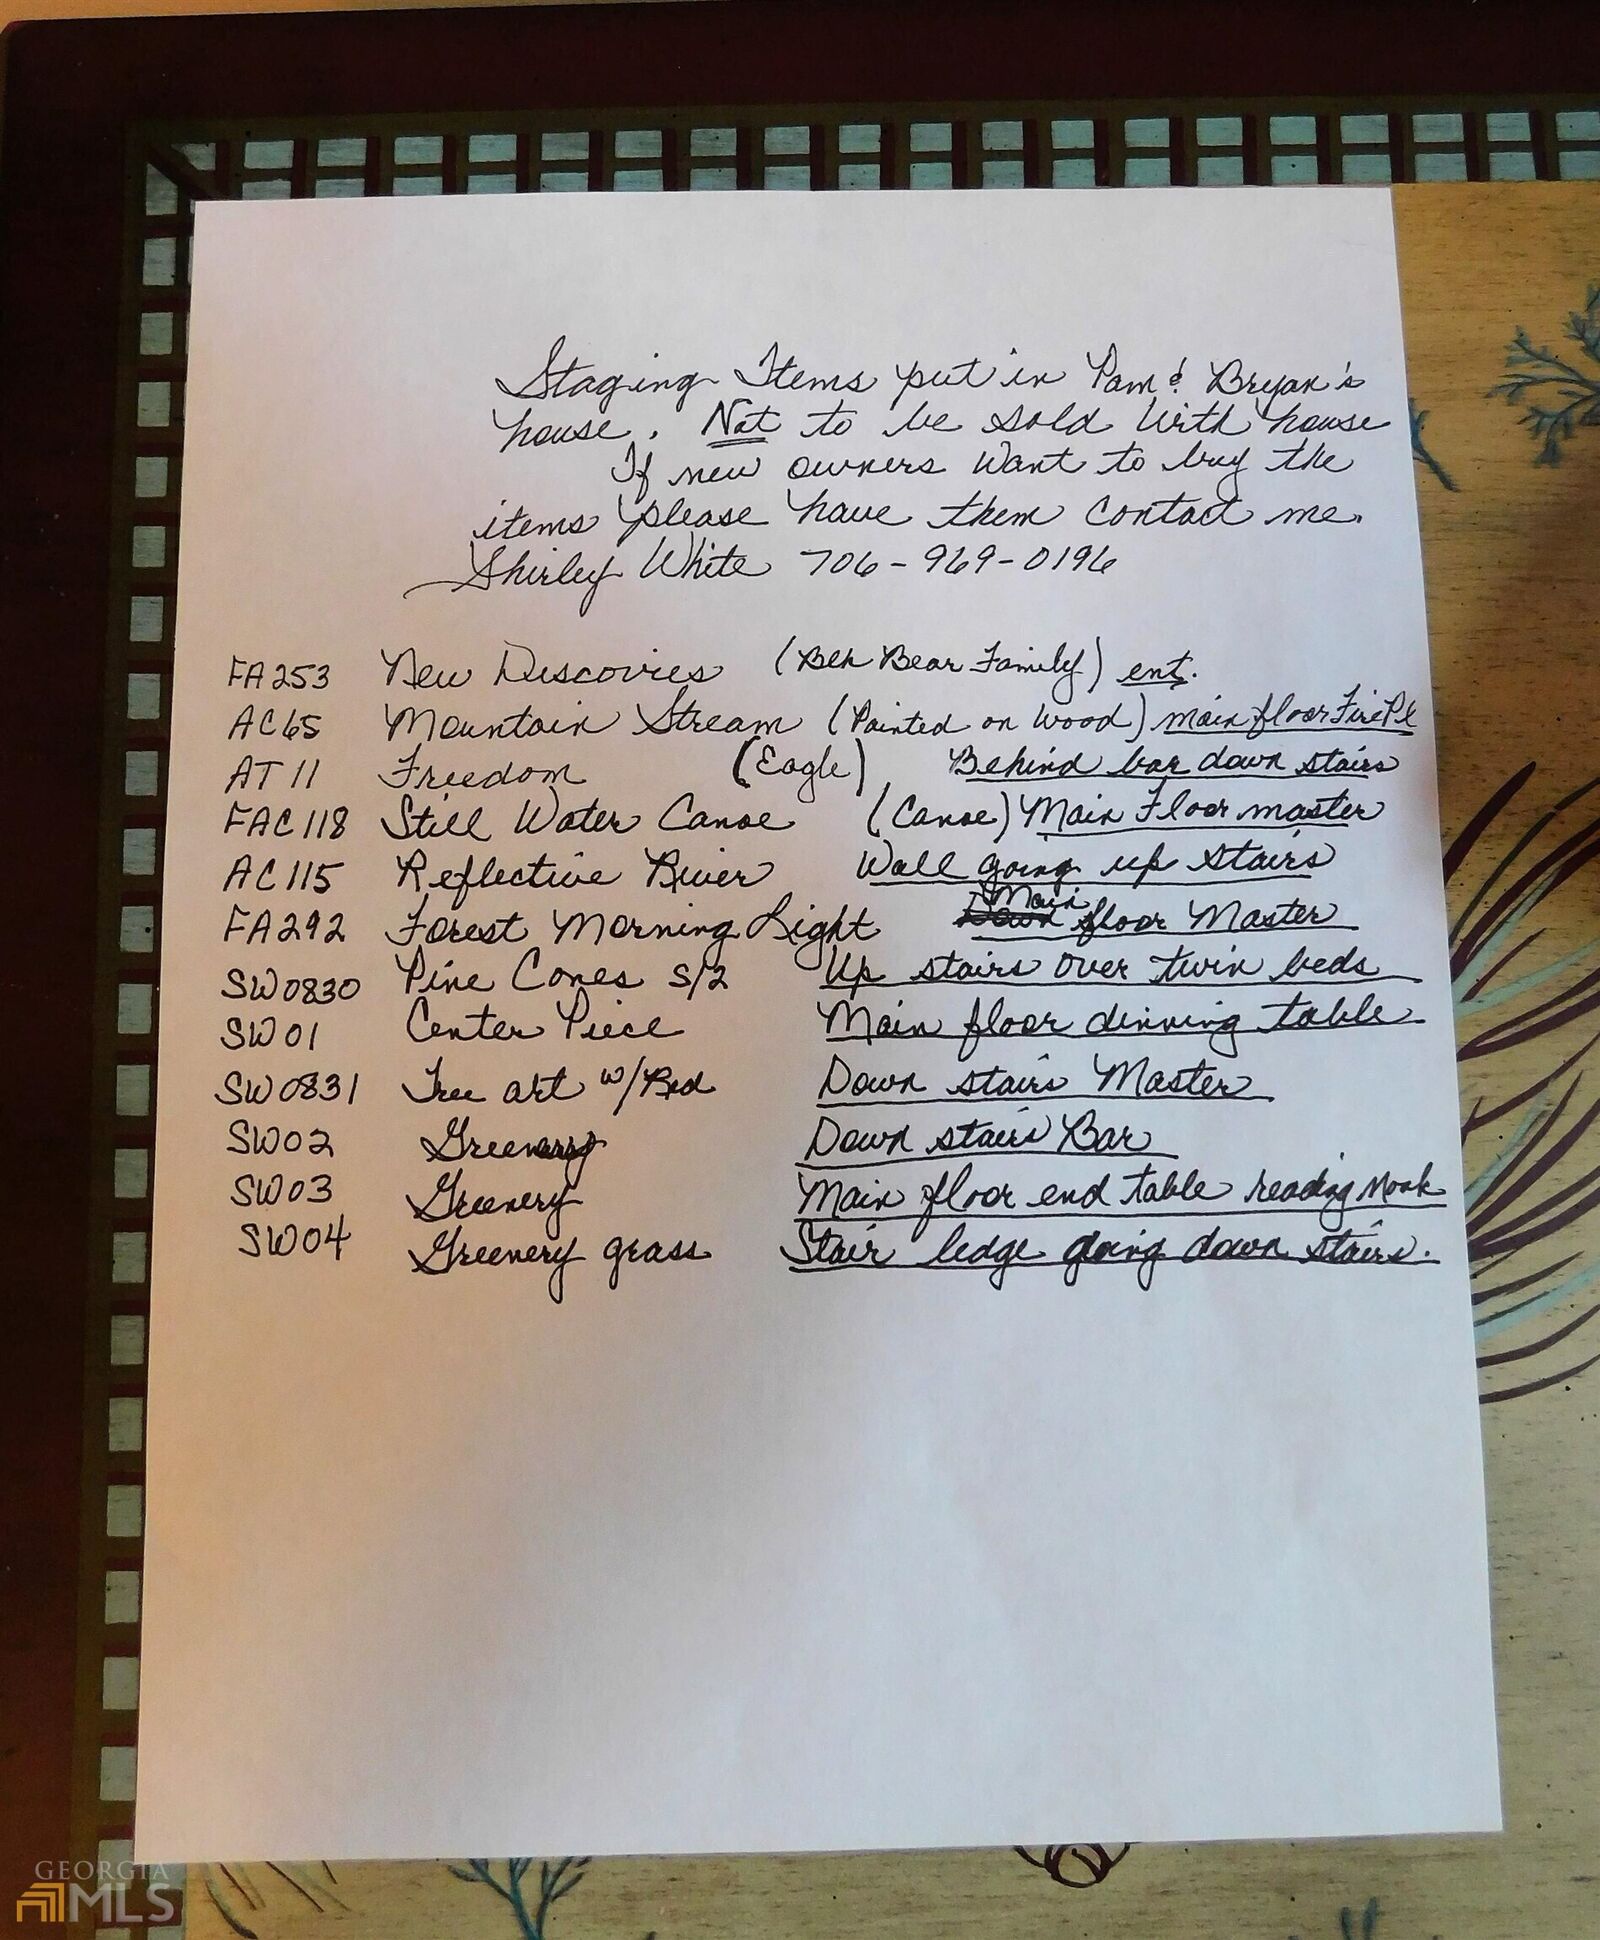 Staging Items put in Pam & Bryan's
house. Not to be sold with house
If new owners want to buy the
items please have them contact me.
Shirley White 706-969-0196
FA253 New Discovries (Blk Bear Family) ent.
AC65 Mountain Stream (Painted on Wood) main floor FirePl
AT11 Freedom (Eagle) Behind bar down stairs
FAC118 Still Water Canoe (Canoe) Main Floor master
AC115 Reflective River Wall going up stairs
FA292 Forest Morning Light Main floor Master
SW0830 Pine Cones S/2 Up stairs over twin beds
SW01 Center Piece Main floor dinning table
SW0831 Tree art w/ Down stairs Master
SW02 Greenery Down stairs Bar
SW03 Greenery Main floor end table reading nook
SW04 Greenery grass Stair ledge going down stairs.
GEORGIA
MLS